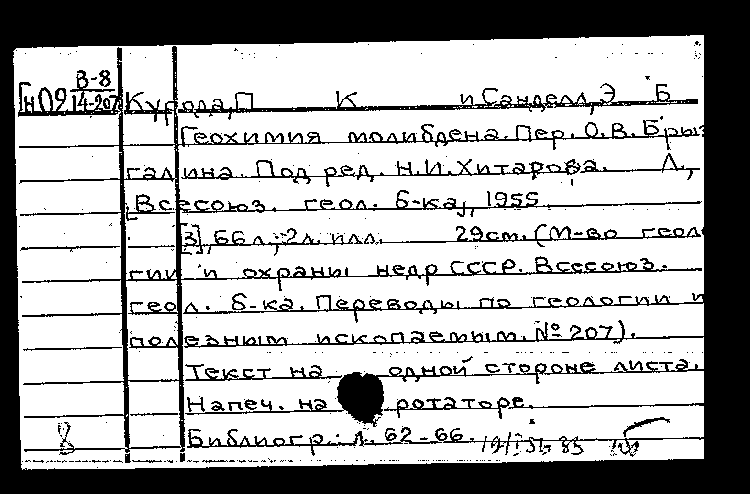 В-8
Гн09 14-207 Курода, П К и Санделл, Э Б
Геохимия молибдена. Пер. О.В. Брыз
галина. Под ред. Н.И. Хитарова. Л.,
[Всесоюз. геол. б-ка], 1955.
[3], 66 л.; 2 л. илл. 29 см. (М-во геоло
гии и охраны недр СССР. Всесоюз.
геол. б-ка. Переводы по геологии и
полезным ископаемым. № 207).
Текст на одной стороне листа.
Напеч. на ротаторе.
Библиогр.: л. 62-66.
8